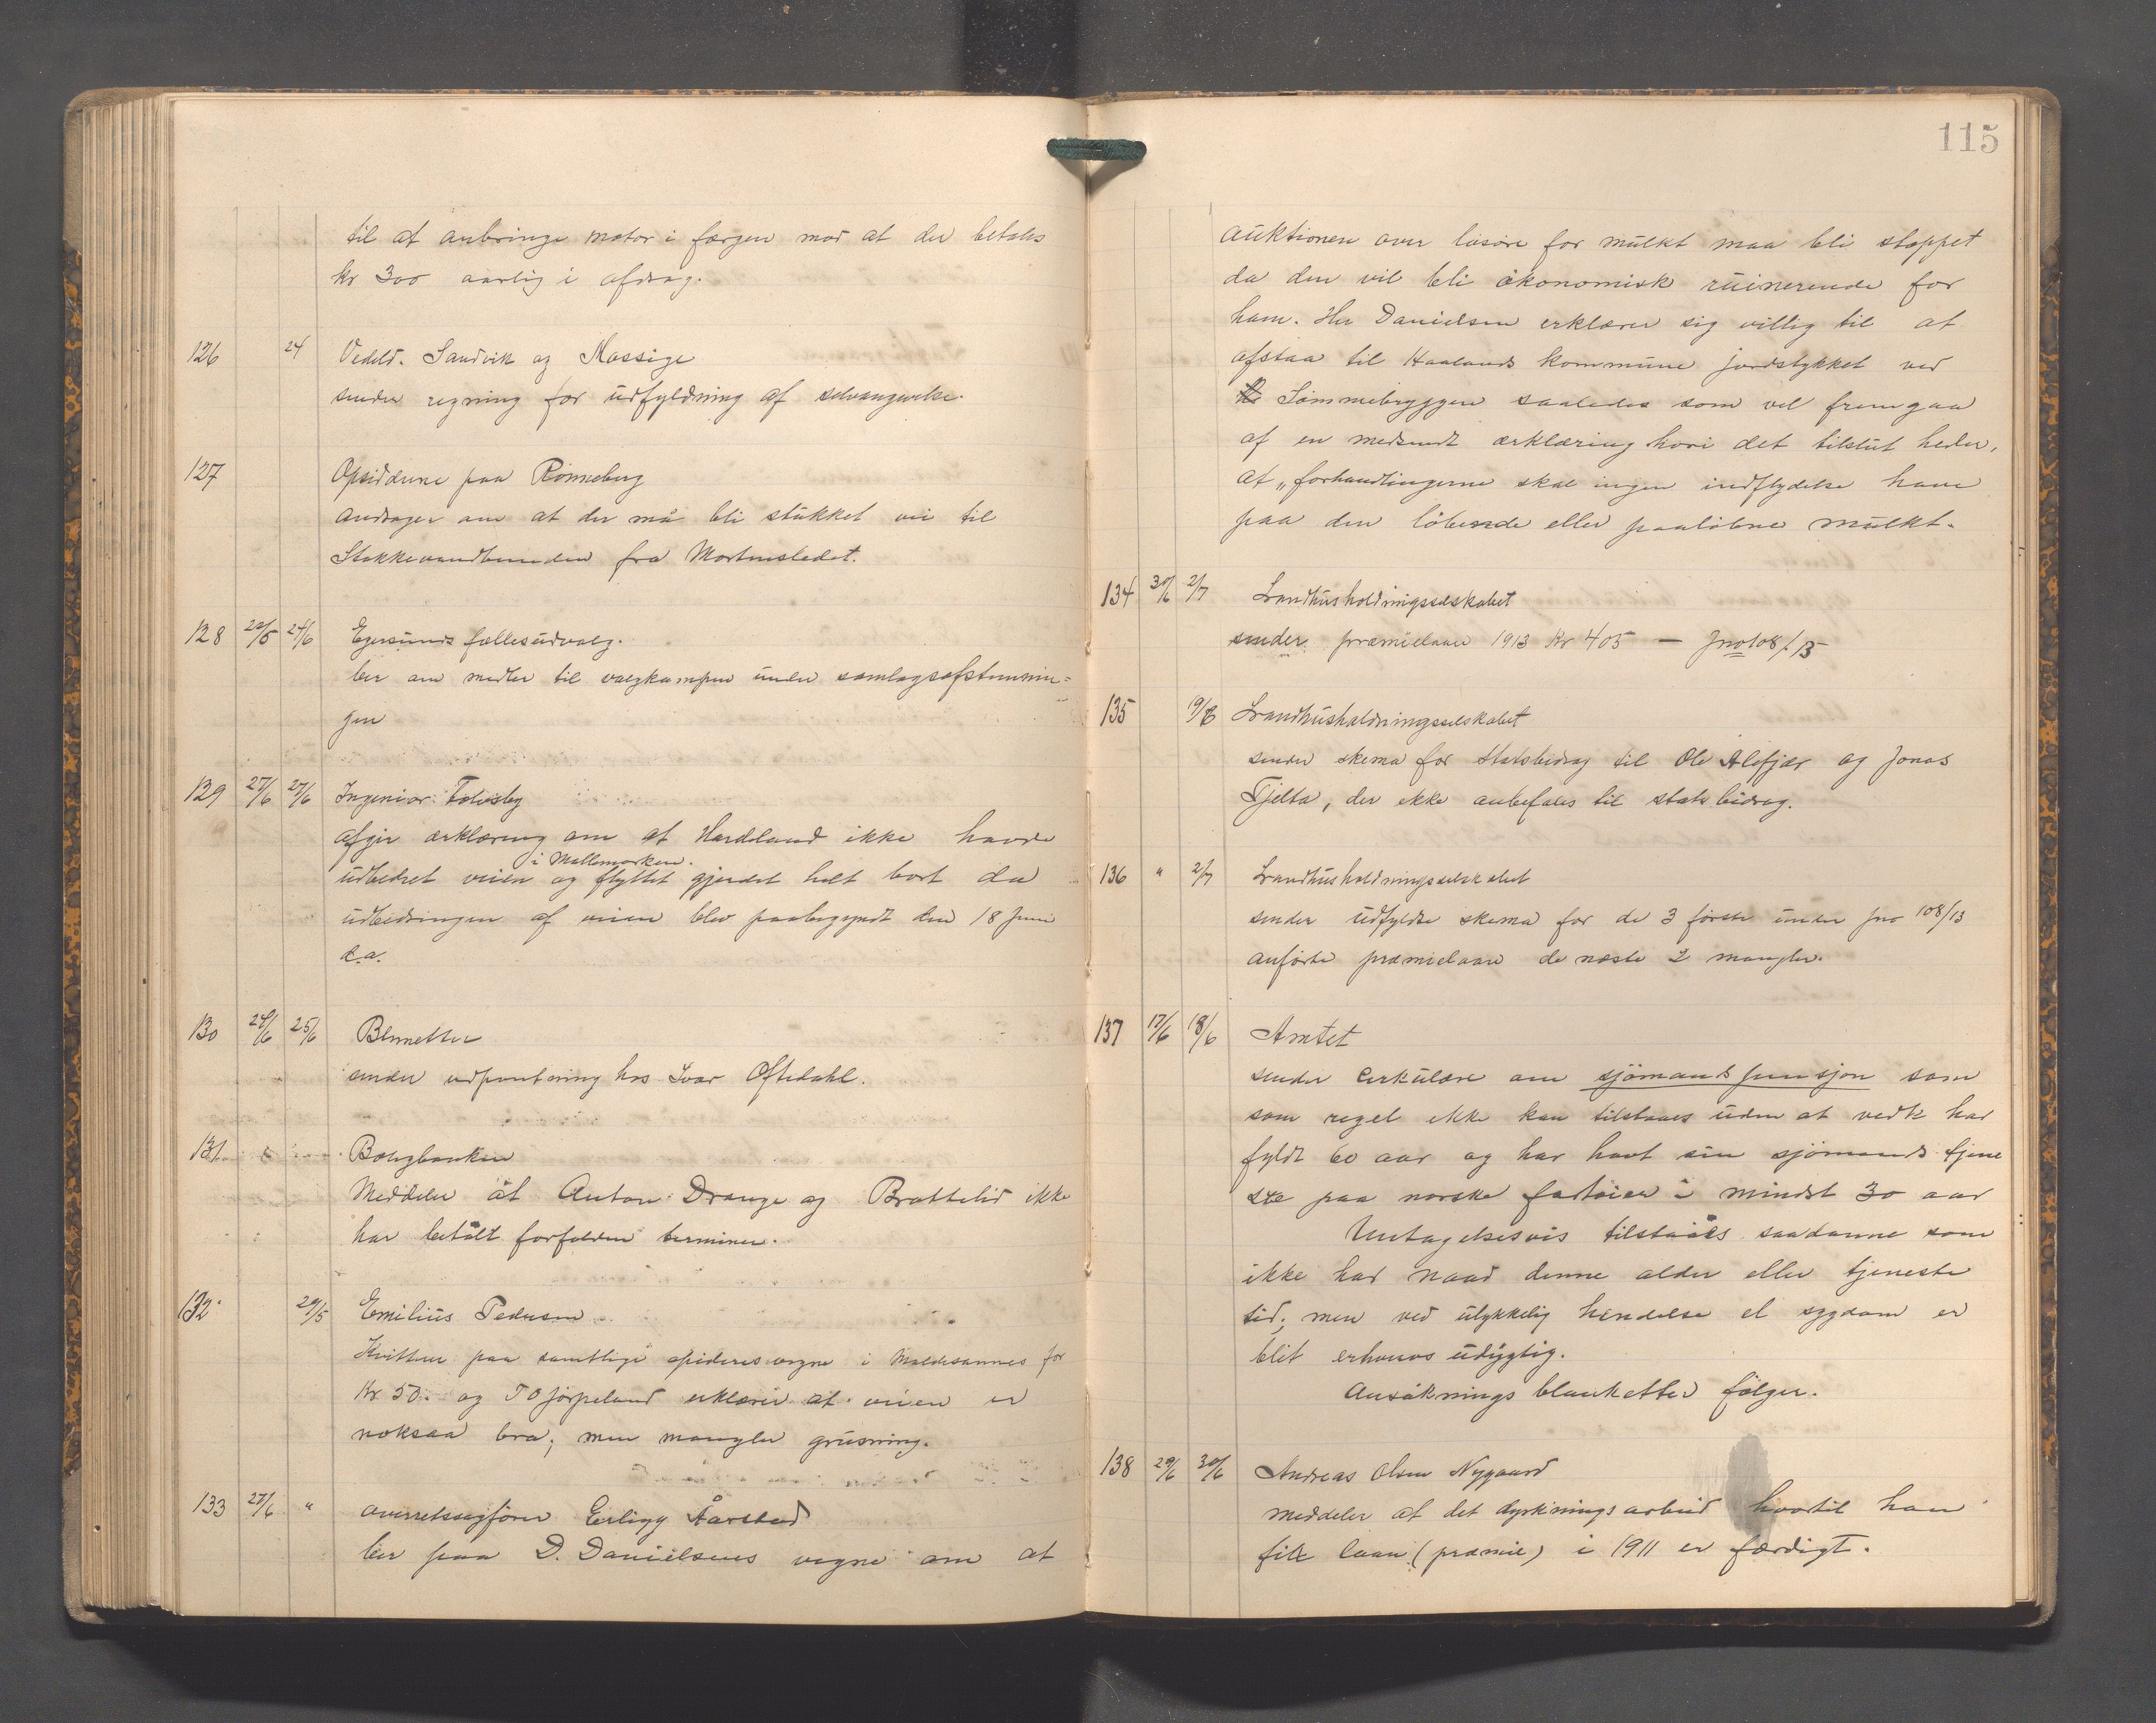 til at anbringe motor i færgen mod at der betales
kr 300 aarlig i afdrag.
126 24 Vedeld. Sandvik og Mossige
sender regning for udfyldning af selvangivelse.
127 Opsidderne paa Rönneberg
andrager om at der må bli stükket vei til
Stokkevandbunden fra Mortensledet.
128 22/5 24/6 Egersunds fællesudvalg.
ber om midler til valgkampen under samlagsafstemnin=
gen
129 27/6 27/6 Ingeniør
afgir erklæring om at Hardeland ikke havde
i Mallemarken.
udbedret veien og flyttet gjerdet helt bort da
udbedringen af veien blev paabegyndt den 18 Juni
d.a.
130 24/6 25/6 Blennetter
sender udpantning hos Ivar Oftedahl.
131 Boligbanken
Meddeler at Anton Drange og Brattelid ikke
har betalt forfaldne terminer.
132 29/5 Emilius Pedersen
Kvitterer paa samtlige opsideres vegne i Maldesannes for
Kr 50. og T O Jörpeland erklærer at veien er
noksaa bra; men mangler grusning.
133 27/6 " overretssagfører Erligy Aarstad
ber paa D. Danielsens vegne om at
115
auktionen over lösöre for mulkt maa bli stoppet
da den vil bli ökonomisk ruinerende for
ham. Hr Danielsen erklærer sig villig til at
afstaa til Haalands kommune jordstykket ved
Sömmebryggen saaledes som vil fremgaa
af en medsendt erklæring hvori det tilslut heder,
at „forhandlingerne skal ingen indflydelse have
paa den löbende eller paalöbne mulkt.
134 30/6 2/7 Landhusholdningsselskabet
sender præmielaan 1913 Kr 405 — Jno 108/13
135 19/6 Landhusholdningsselskabet
sender skema for statsbidrag til Ole Alefjær og Jonas
Tjelta, der ikke anbefales til statsbidrag.
136 " 2/7 Landhusholdningsselskabet
sender udfyldte skema for de 3 förste under Jno 108/13
anförte præmielaan de næste 2 mangler.
137 17/6 18/6 Amtet
sender cirkulære om sjömandspensjon som
som regel ikke kan tilstaaes uden at vedk har
fyldt 60 aar og har havt sin sjömands tjene
ste paa norske fartöier i mindst 30 aar
Untagelsesvis tilstaaes saadanne som
ikke har naad denne alder eller tjeneste
tid; men ved ulykkelig hendelse el sygdom er
blit erhvervs udygtig.
Ansöknings blanketter fölger.
138 29/6 30/6 Andreas Olsen Nygaard
meddeler at det dyrkningsarbeid hvortil han
fik laan (præmie) i 1911 er færdigt.